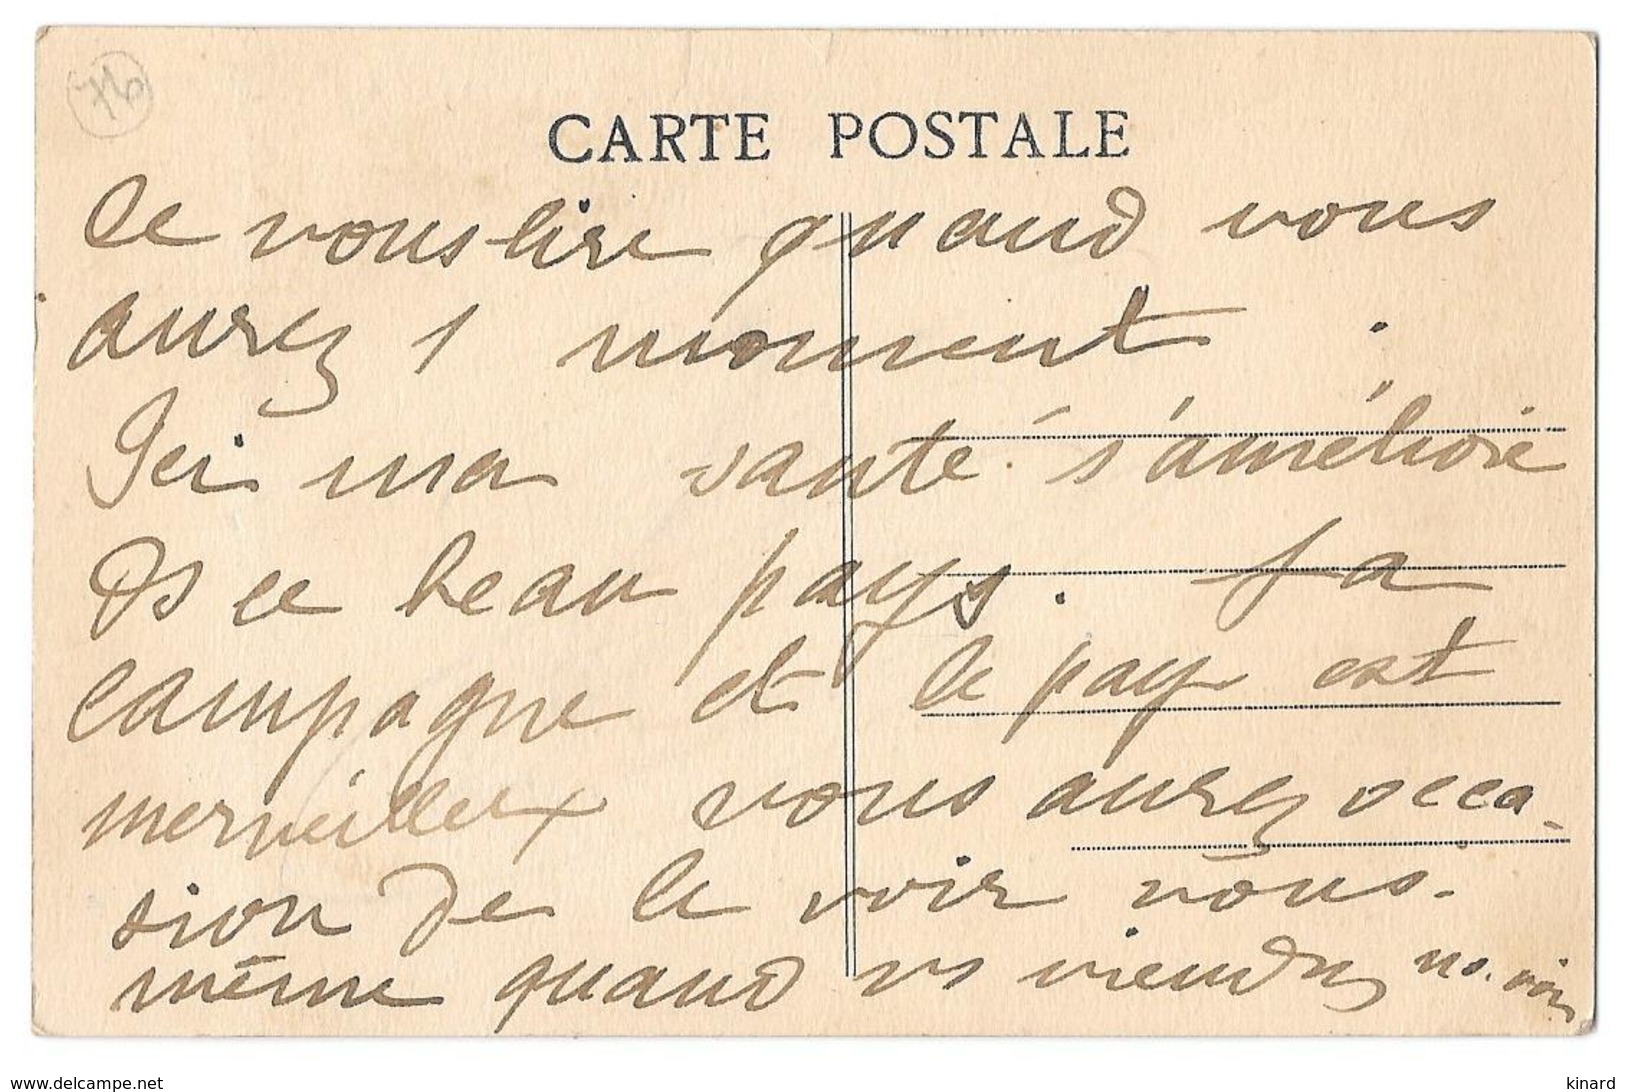 CARTE POSTALE
de vous lire quand vous
aurez 1 moment.
Ici ma santé s'améliore
ds ce beau pays. La
campagne et le pays est
merveilleux vous aurez occa-
sion de le voir vous-
même quand vs viendrez ns voir
www.delcampe.net
kinard